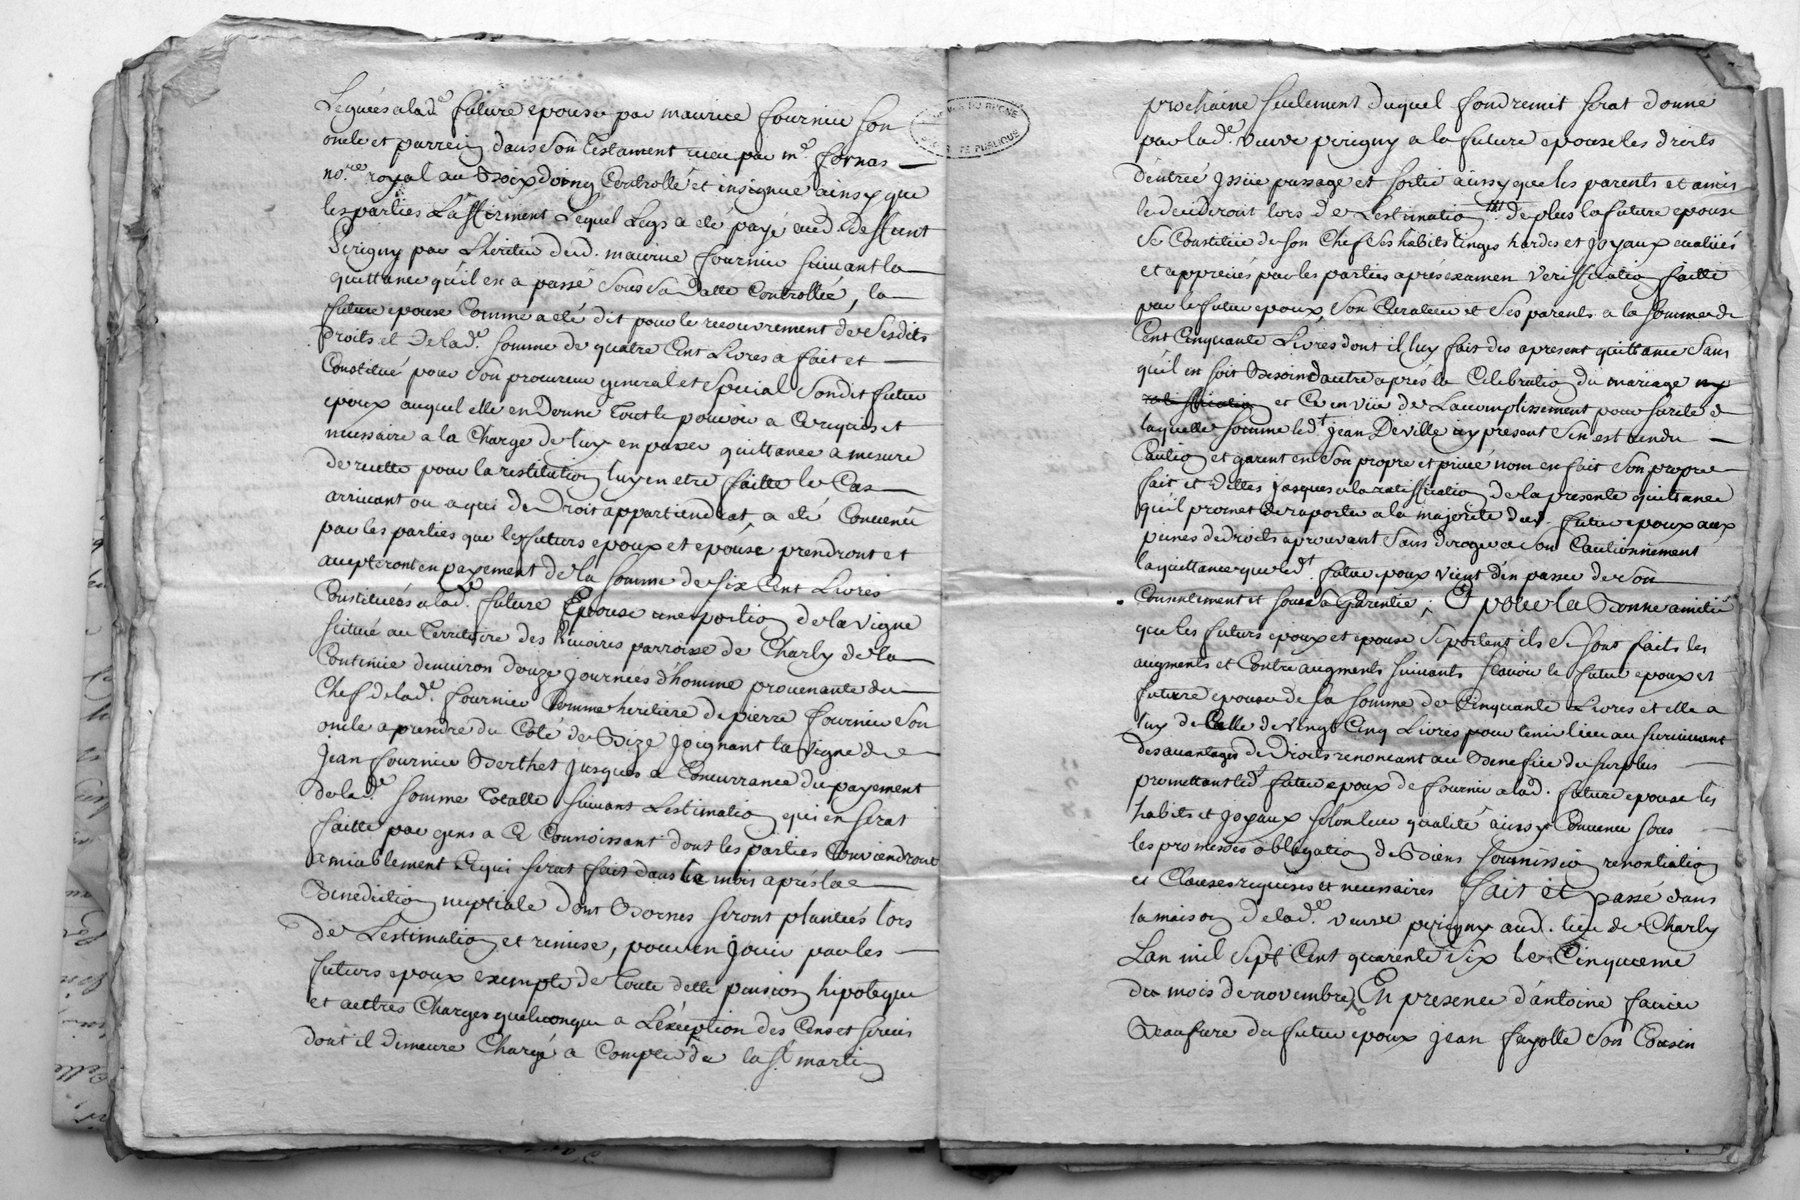 Legués a lad.e future epouse par maurice fournier son
oncle et parrein dans son Testament recu par m.e fornas
no.re royal au Bois doing Controllé et insignué ainsy que
les parties L'affirment Lequel Legs a eté payé aud. deffunt
Perigny par L'heritier dud. maurice fournier suivant la
quittance qu'il en a passé sous sa datte Controllée, la
future epouse Comme a eté dit pour le recouvrement de sesdits
Droits et De lad.e somme de quatre Cent Livres a fait et
Constitué pour son procureur general et special sondit futur
epoux auquel elle en Donne Tout le pouvoir a Ce requis et
necessaire a la Charge de luy en passer quittance a mesure
de recette pour la restitution luy en etre faitte le Cas
arrivant ou a qui de Droit appartiendrat, a eté Convenu
par les parties que les futurs epoux et epouse prendront et
accepteront en payement de la somme de six Cent Livres
Constituées a lad.e future Epouse une portion de la vigne
scituée au Territoire des Rivoires parroisse de Charly de la
Contenue d'environ douze journées d'homme provenante du
Chef de lad.e fournier Comme heritiere de pierre fournier son
oncle a prendre du Coté de Bize joignant la vigne de
jean fournier Berthet jusques a Concurrance du payement
de lad.e somme Totalle suivant L'estimation qui en serat
faitte par gens a Ce Connoissant dont les parties Conviendront
amiablement Ce qui serat fait dans le mois après la
Benediction nuptiale dont Bornes seront plantées lors
de L'estimation et remise, pour en jouir par les
futurs epoux exempte de toute dette pension hipoteque
et autres Charges quelconque a L'exception des Cens et servis
dont il demeure Chargé a Compter de la S.t martin
prochaine seulement duquel fond remit serat donné
par lad.e veuve perigny a la future epouse les droits
d'entrée issüe passage et sortie ainsy que les parents et amis
le decideront lors de L'estimation de plus la future epouse
se Constitüe de son Chef ses habits linges hardes et joyaux evalués
et appreciés par les parties après examen veriffication faitte
par le futur epoux, son Curateur et ses parents a la somme de
Cent Cinquante Livres dont il luy fait des apresent quittance sans
qu'il en soit Besoin d'autre après la Celebration du mariage ny
ratiffication et Ce en vüe de L'accomplissement pour sureté de
laquelle somme led.t jean Deville icy present s'en est rendu
Caution et garent en son propre et privé nom en fait son propre
fait et dettes jusques a la ratiffication de la presente quittance
qu'il promet de raporter a la majorité dud. futur epoux aux
peines de droits aprouvant sans deroger a son Cautionnement
la quittance que led.t futur epoux vient d'en passer de son
Consentement et sous sa Garentie; Et pour la Bonne amitié
que les futurs epoux et epouse se portent ils se sont faits les
augments et Contre augments suivants scavoir le futur epoux et
future epouse de la somme de Cinquante Livres et elle a
luy de Celle de vingt Cinq Livres pour tenir lieu au survivant
des avantages de Droits renoncant au Benefice du surplus
promettant led.t futur epoux de fournir a lad. future epouse les
habits et joyaux selon leur qualité ainsy Convenu sous
les promesses obligation de Biens soumission renontiation
et Clauses requises et necessaires fait et passé dans
la maison de lad.e veuve perigny aud. lieu de Charly
Lan mil sept Cent quarente six le Cinquieme
du mois de novembre, En presence d'antoine favier
Beaufrere du futur epoux jean fayolle son Cousin